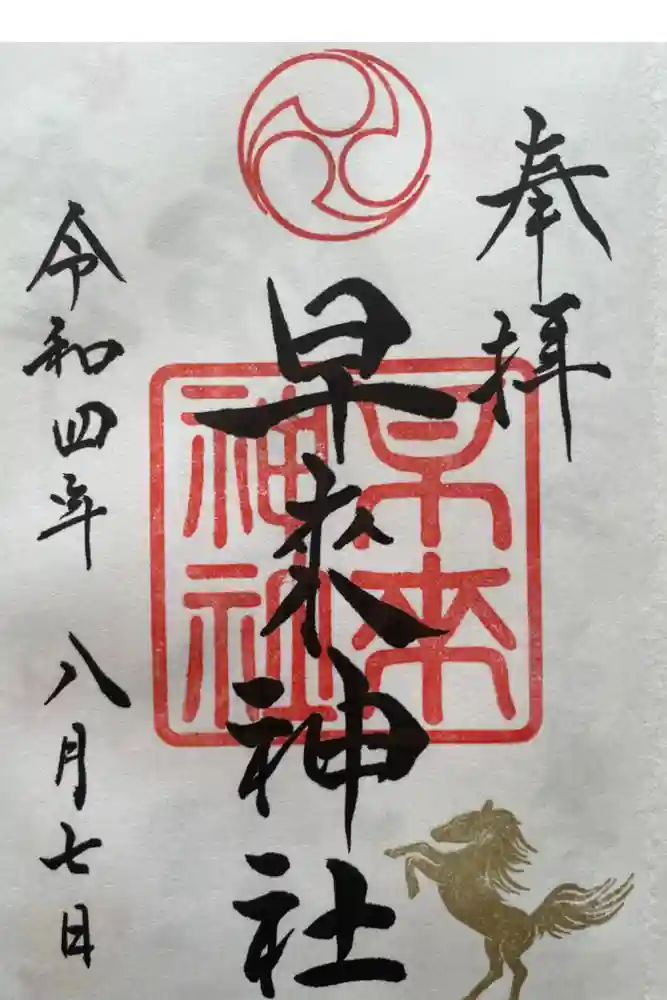 奉拝
早来神社
早来神社
令和四年 八月七日